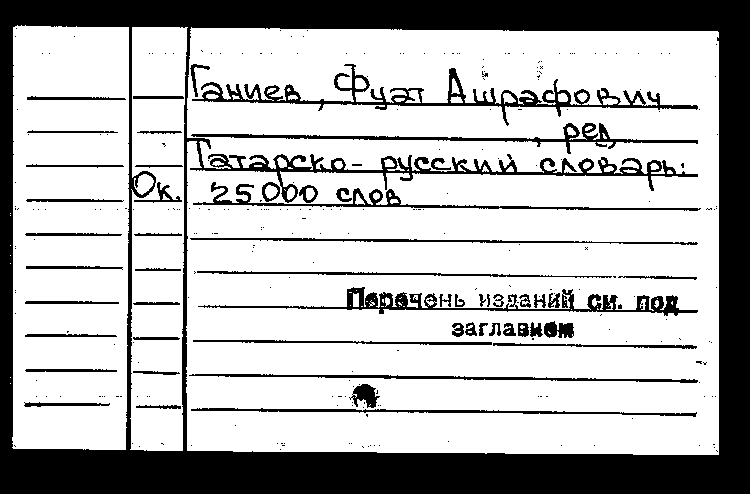 Ганиев, Фуат Ашрафович
, ред.
Татарско-русский словарь:
Ок. 25000 слов
Перечень изданий см. под
заглавием